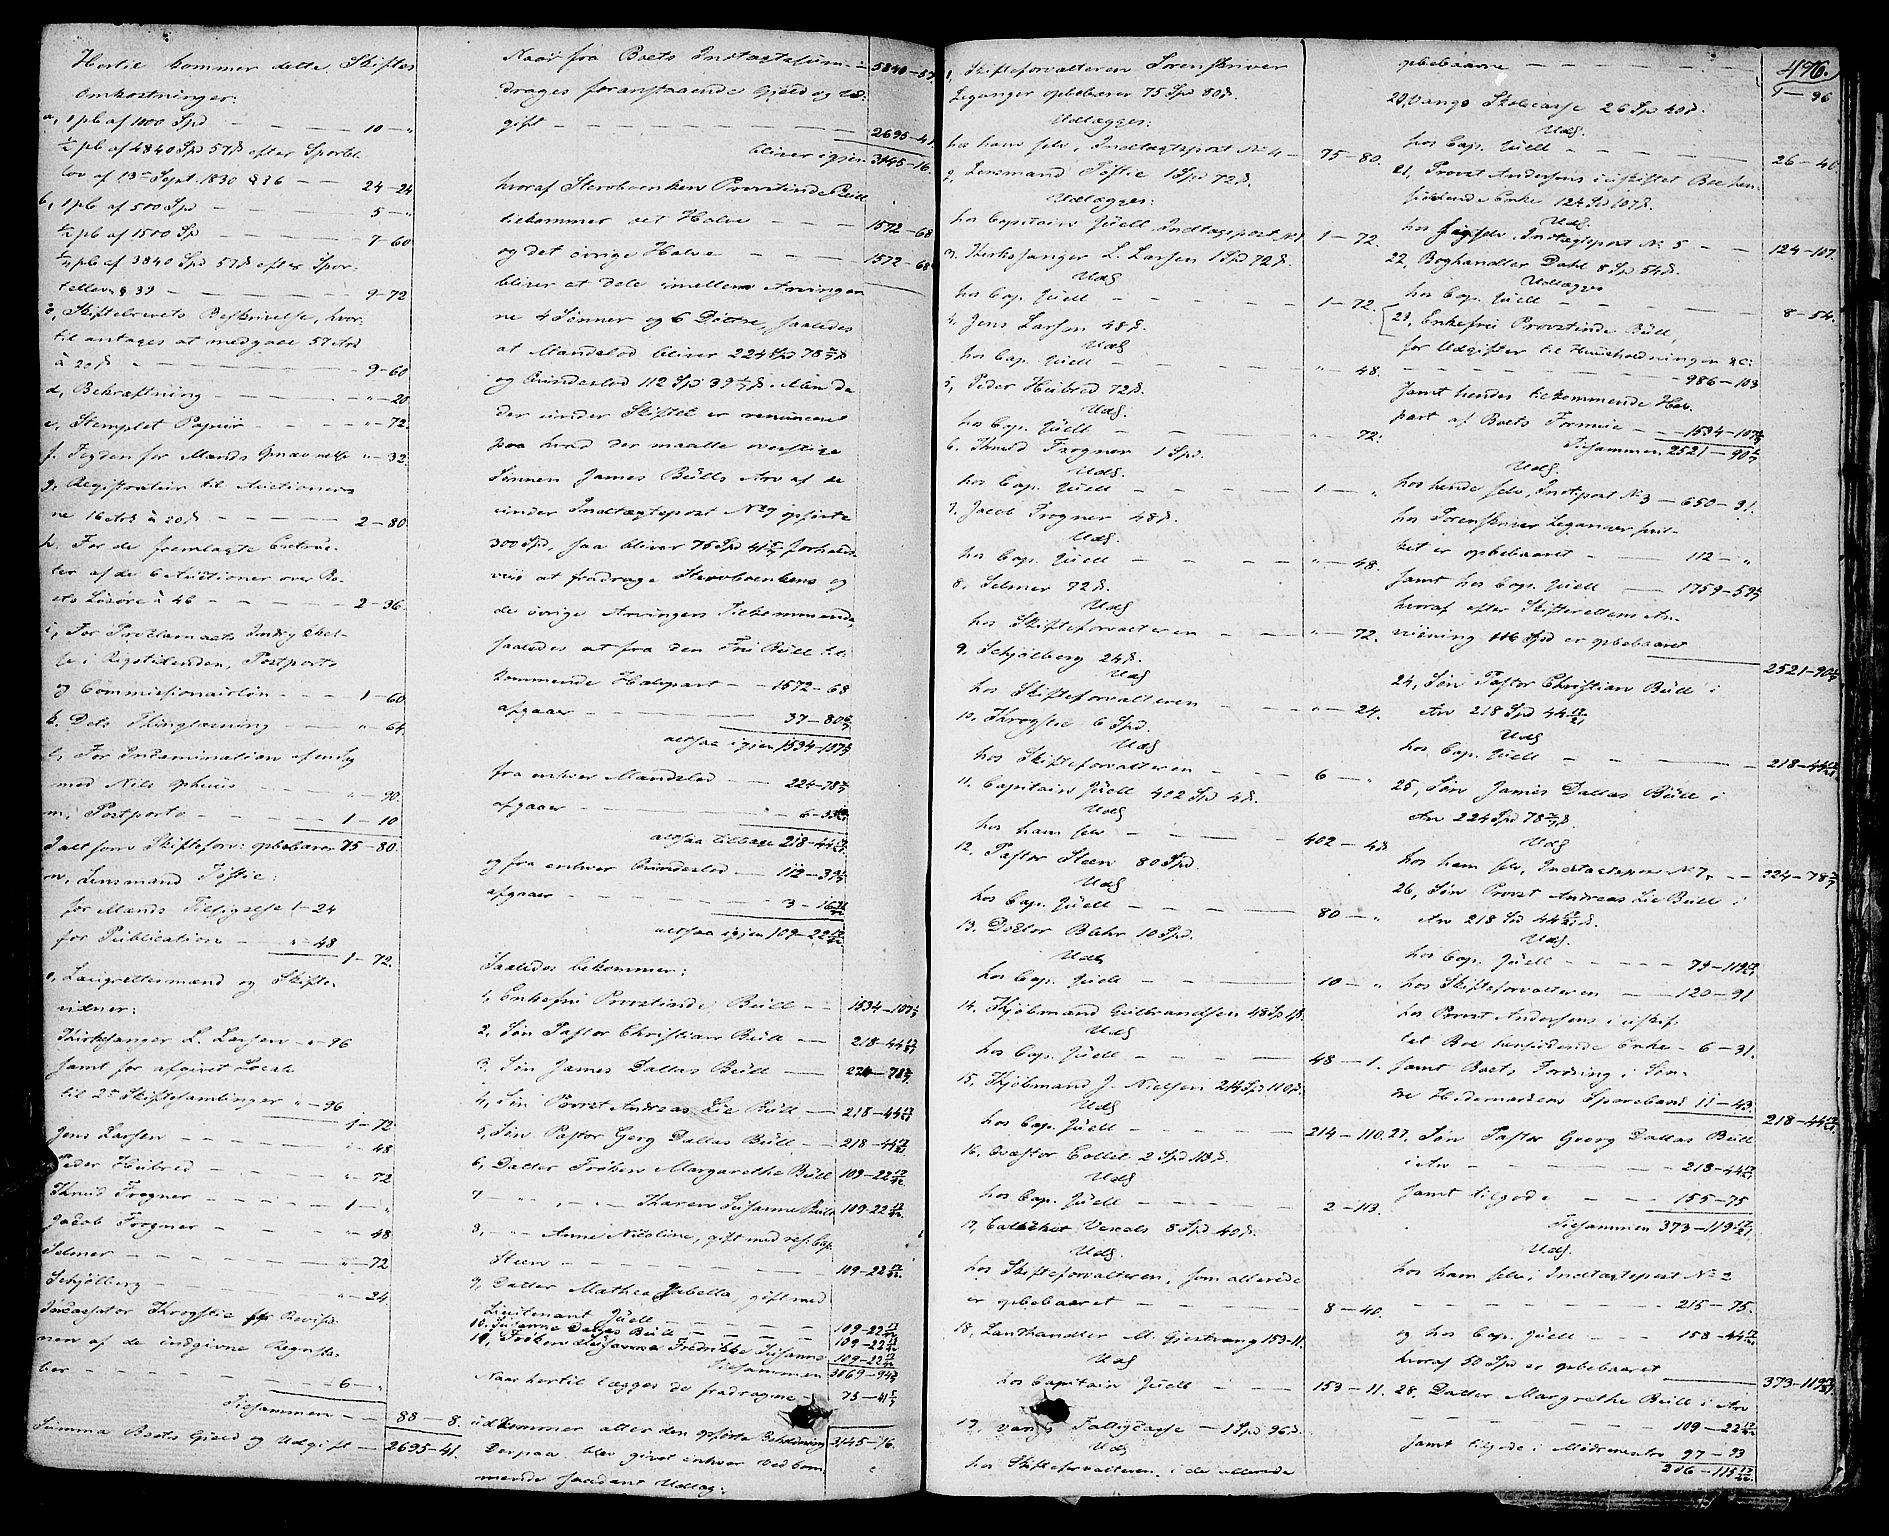 Hertil kommer dette Skiftes
Omkostninger:
a, 1 pb af 1000 Spd — — — 10 — "
½ pb af 4840 Spd 57 ß efter Sportel
lov af 13de Sept. 1830 § 36 — — 24 — 24
b, 1 pb af 500 Spd — — — 5 — "
½ pb af 1500 Sp — — — 7 — 60
¼ pb af 3840 Spd 57 ß efter Spor-
telloven § 39 — — — 9 — 72
c, Skiftebrevets Beskrivelse, hvor-
til antages at medgaae 57 Ark
à 20 ß — — — 9 — 60
d, Bekræftning — — — " — 20
e, Stemplet Papiir — — — " — 72.
f. Fogden for Mænds Opnævnelse " — 32.
g. Registratur til Auctioner-
ne 16 Ark à 20 ß — — — 2 — 80.
h. For de fremlagte Extrac-
ter af de 6 Auctioner over Bo-
ets Løsøre à 46 — — — 2 — 36.
i, For Proclamaets Indrykkel-
se i Rigstidenden, Postporto
og Commissionairløn — — — 1 — 60
k. Dets Thinglæsning — — " — 64
l, For
med Nils Ophuus — — — " — 90
m, Postporto — — — 1 — 10
Ialt som Skifteforv: opbebærer 75 — 80.
n, Lensmand Tostie:
for Mænds Tilsigelse 1 — 24
for Publication — " — 48
1 — 72.
o, Laugrettesmænd og Skifte-
vidner:
Kirkesanger L. Larsen — " — 96
samt for afgivet Locale
til 2de Skiftesamlinger " — 96
1 — 72
Jens Larsen — — — " — 48
Peder Heibred — — — " — 72
Knud Frogner — — — 1 — "
Jacob Frogner — — — " — 48
Selmer — — — " — 72
Schjølberg — — — " — 24
Krogstie for Revisio-
nen af de indgivne Regnska-
ber — — — 6 — "
Tilsammen — — 88 — 8.
Summa Boets Gjeld og Udgift — 2695 — 41.
Naar fra Boets Indtægtssum — 5840 — 57
drages foranstaaende Gjeld og Ud-
gift — — — 2695 — 41
bliver igjen 3145 — 16.
hvoraf Stervboenken Provstinde Büll
tilkommer det Halve — — 1572 — 68
og det øvrige Halve — — — 1572 — 68
bliver at dele imellem Arvingen-
ne 4 Sønner og 6 Døttre, saaledes
at Mandslod bliver 224 Spd 78 ß
og Qvindeslod 112 Spd 39 ß. Men da
der under Skiftet er renunceret
paa hvad der maatte overstige
Sønnen James Bülls Arv af de
under Indtægtspost No 7 opførte
300 Spd, saa bliver 75 Spd 41 ß forholds-
viis at fradrage Stervboenkens og
de øvrige Arvingers Tilkommende,
saaledes at fra den Fru Büll til-
kommende Halvpart — — 1572 — 68
afgaaer — — — 37 — 80
altsaa igjen 1534 — 107
fra enhver Mandslod — — 224 — 78
afgaaer — — — " 6 — 33
altsaa tilbage 218 — 44
og fra enhver Qvindeslod — 112 — 39
afgaaer — — — 3 — 16
altsaa igjen 109 — 22
Saaledes bekommer:
1, Enkefru Provstinde Büll — — 1534 — 107
2. Søn Pastor Christian Büll — — 218 — 44
3. Søn James Dallas Büll — — 224 — 78
4, Søn Provst Andreas Lie Büll — 218 — 44
5, Søn Pastor Georg Dallas Büll — 218 — 44
6, Datter Froben Margarethe Büll 109 — 22
7 — " — " — Karen Susanne Büll 109 — 22
8, — " — Anne Nicoline, gift med res: Cap.
Steen — — — 109 — 22
9, Datter Mathea Isabella, gift med
Lieutenant Jüell — — — 109 — 22
10. Susanne Dallas Büll — — 109 — 22
11, Froben Fredrikke Susanne 109 — 22
Tilsammen 3069 — 94
Naar hertil lægges de fradragne — 75 — 41
udkommer atter den opførte Beholdning 3145 — 16.
Derpaa blev givet enhver Vedkom-
mende saadant Udlæg:
1, Skifteforvalteren Sorenskriver
Leganger opbebærer 75 Spd 80 ß.
Udlægges:
hos ham selv, Indtægtspost No 4 — 75 — 80.
2, Lensmand Tostie 1 Spd 72 ß.
Udlægges:
hos Capitain Jüell Indtægtspost No 1 1 — 72.
3. Kirkesanger L. Larsen 1 Spd 72 ß.
Udl
hos Cap. Jüell — — — 1 — 72.
4, Jens Larsen 48 ß.
Udl
hos Cap. Jüell — — — " — 48.
5, Peder Heibred 72 ß.
Udl.
hos Cap. Jüell — — — " — 72.
6. Knud Frogner 1 Spd.
Udl
hos Cap. Jüell — — — 1 — "
7. Jacob Frogner 48 ß.
Udl.
hos Cap. Jüell — — — " — 48.
8. Selmer 72 ß.
Udl
hos Skifteforvalteren — — " — 72.
9, Schjølberg 24 ß.
Udl
hos Skifteforvalteren — — — " — 24.
10. Krogstie 6 Spd.
Udl
hos Skifteforvalteren — — — 6 — "
11. Capitain Jüell 402 Spd 4 ß.
Udl
hos ham selv — — — 402 — 4
12. Pastor Steen 80 Spd.
Udl
hos Cap. Jüell — — — 80 — "
13. Doctor Blehr 10 Spd.
Udl
hos Cap. Jüell — — — 10 — "
14. Kjøbmand Gulbrandsen 48 Sp 1 ß.
Udl
hos Cap. Jüell — — — 48 — 1.
15, Kjøbmand J. Nielsen 214 Spd 110 ß.
Udl
hos Cap. Jüell — — — 214 — 110.
16, Qvæstor Collet 2 Spd 113 ß.
Udl
hos Cap. Jüell — — — 2 — 113.
17, 8 Spd 40 ß.
Udl.
hos Skifteforvalteren, som allerede
er opbebaaret — — — 8 — 40.
18, Landhandler M. Gjestvang 153 — 11.
Udl
hos Capitain Jüell — — 153 — 11.
19, Vangs Fattigcasse — 1 Spd 96 ß.
Udl
hos Skifteforvalteren, i de allerede
opbebaarne — — — 1 — 96
496.
20, Vangs Skolecasse 26 Spd 40 ß.
Udl.
hos Cap. Jüell — — — 26 — 40.
21, Provst Andersens i uskiftet Boe hen-
siddende Enke 124 Spd 107 ß.
Udl.
hos sig selv, Indtægtspost No 5 — — 124 — 107.
22, Boghandler Dahl 8 Spd 54 ß.
Udlægges
hos Cap. Jüell — — — 8 — 54.
23, Enkefru Provstinde Büll,
for Udgifter til Huusholdningen &c:
— — — 986 — 103
samt hendes tilkommende Halv-
part af Boets Formue — — 1534 — 107
Tilsammen 2521 — 90
Udl.
hos hende selv, Indt.post No 3 — 650 — 31.
hos Sorenskriver Leganger hvil-
ket er opbebaaret — — 112 — "
samt hos Cap. Jüell — — 1759 — 59
hvoraf efter Skifterettens An-
viisning 116 Spd er opbebaaret
2521 — 90
24, Søn Pastor Christian Büll i
Arv 218 Spd 44
Udl
hos Cap. Jüell — — — 218 — 44
25, Søn James Dallas Büll i
Arv 224 Spd 78 ß.
Udl
hos ham selv, Indtægtspost No 7, — — 224 — 78
26, Søn Provst Andreas Lie Büll i
Arv 218 Spd 44 ß.
Udl.
hos Cap. Jüell — — — 79 — 119
hos Skifteforvalteren — — 120 — 91
hos Provst Andersens i uskif-
tet Boe hensiddende Enke — 6 — 31.
samt Boets Fordring i Søn-
dre Hedemarkens Sparebank 11 — 43.
218 — 44
27. Søn Pastor Georg Dallas Büll
i Arv — — — 218 — 44
samt tilgode — — — 155 — 75
Tilsammen 373 — 119
Udl.
hos ham selv, Indtægtspost No 2
— — — 215 — 75.
og hos Cap. Jüell — — — 158 — 44
hvoraf 50 Spd er opbebaaret
373 — 119
28. Datter Margrethe Büll i Arv
— — — 109 — 22
samt tilgode i Mødrenearv 97 — 93
206 — 115